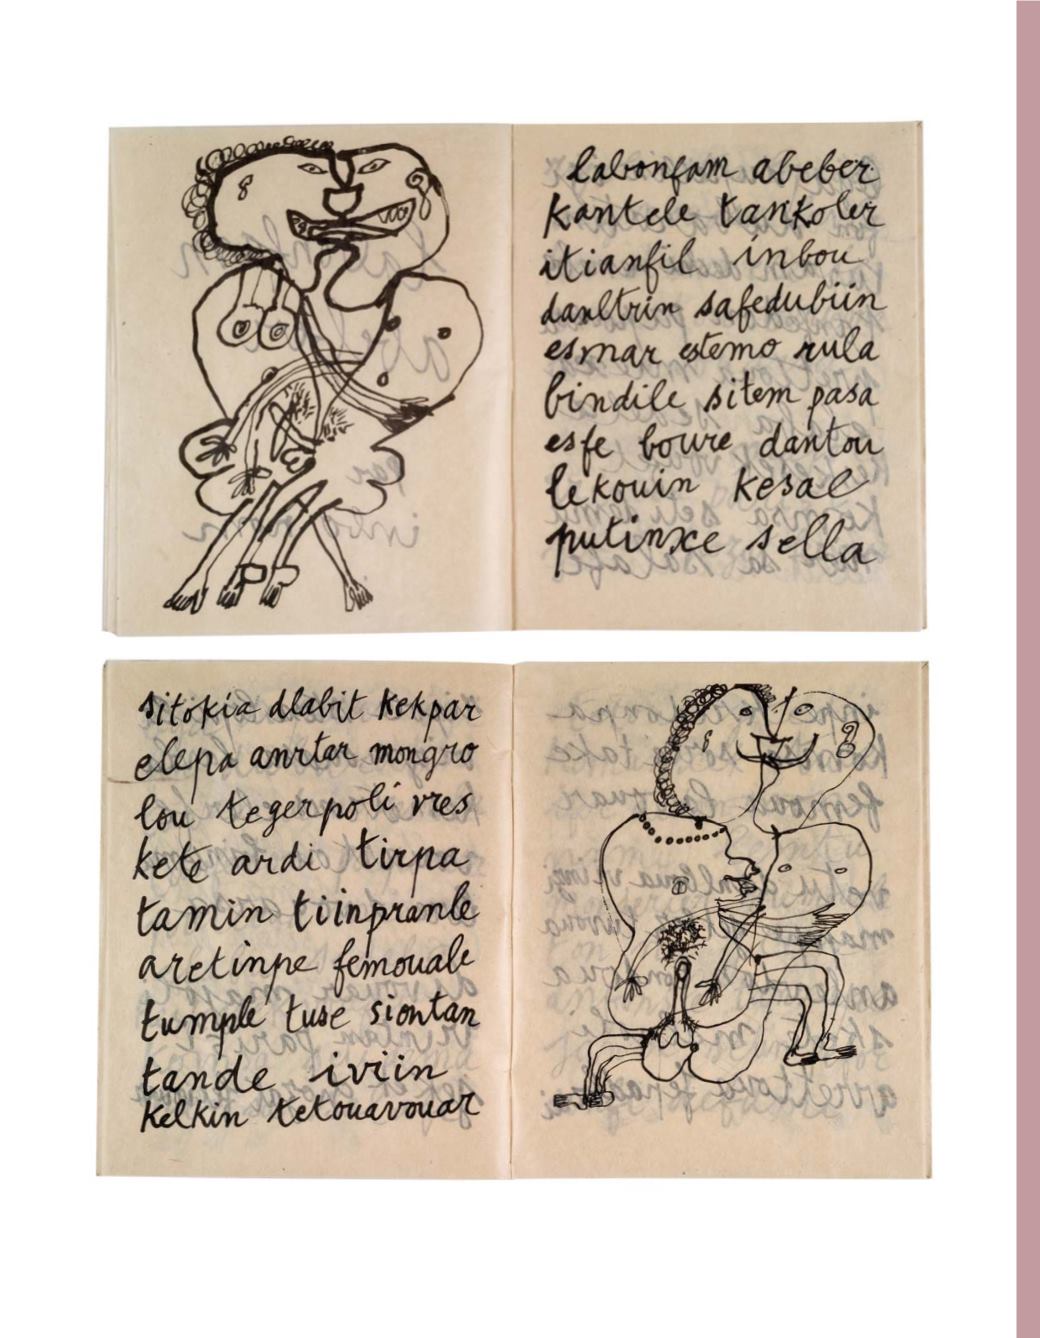 labonfam abeber
kantele tankoler
itianfil inbou
danltrin safedubiin
esmar estemo rula
bindile sitem pasa
esfe boure dantou
lekouin kesal
putinxe sella
sitokia dlabit kekpar
elepa anrtar mongro
lou tegerpoli vres
kete ardi tirpa
tamin tiinpranle
aretinpe femouale
tumple tuse siontan
tande iviin
kelkin tetouavouar